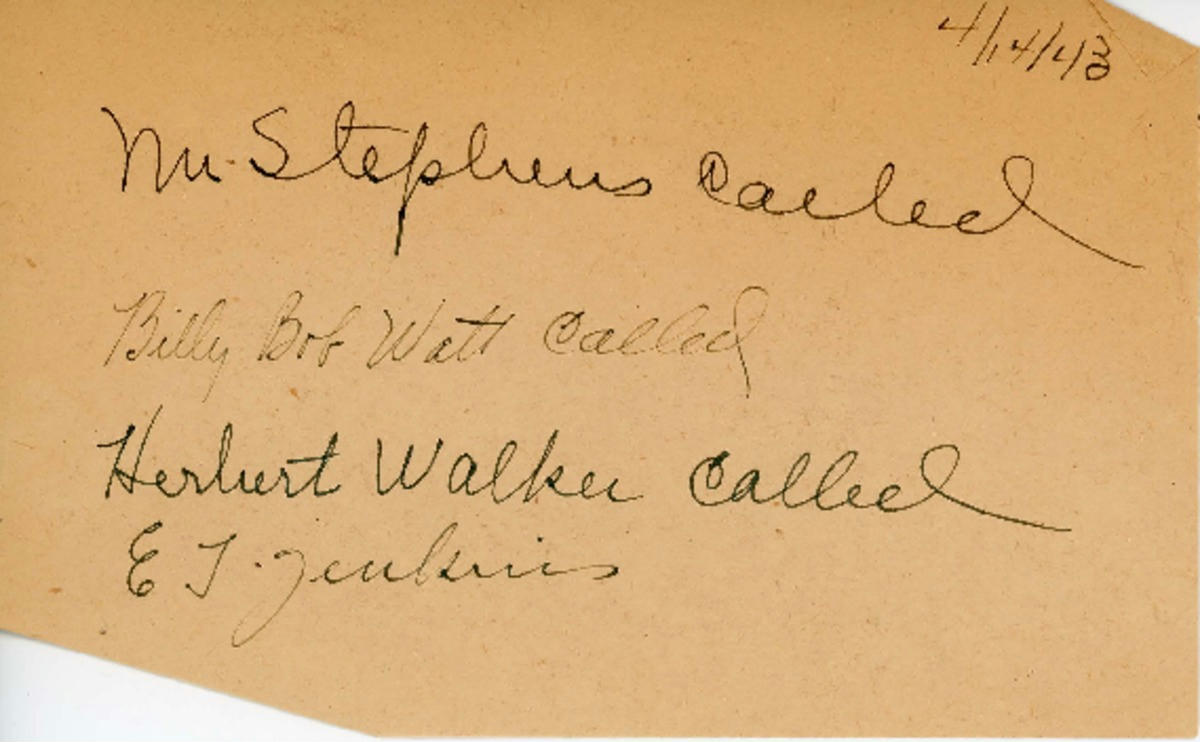 4/14/43
Mr. Stephens called
Billy Bob Watt called
Herbert Walker called
E T. Jenkins